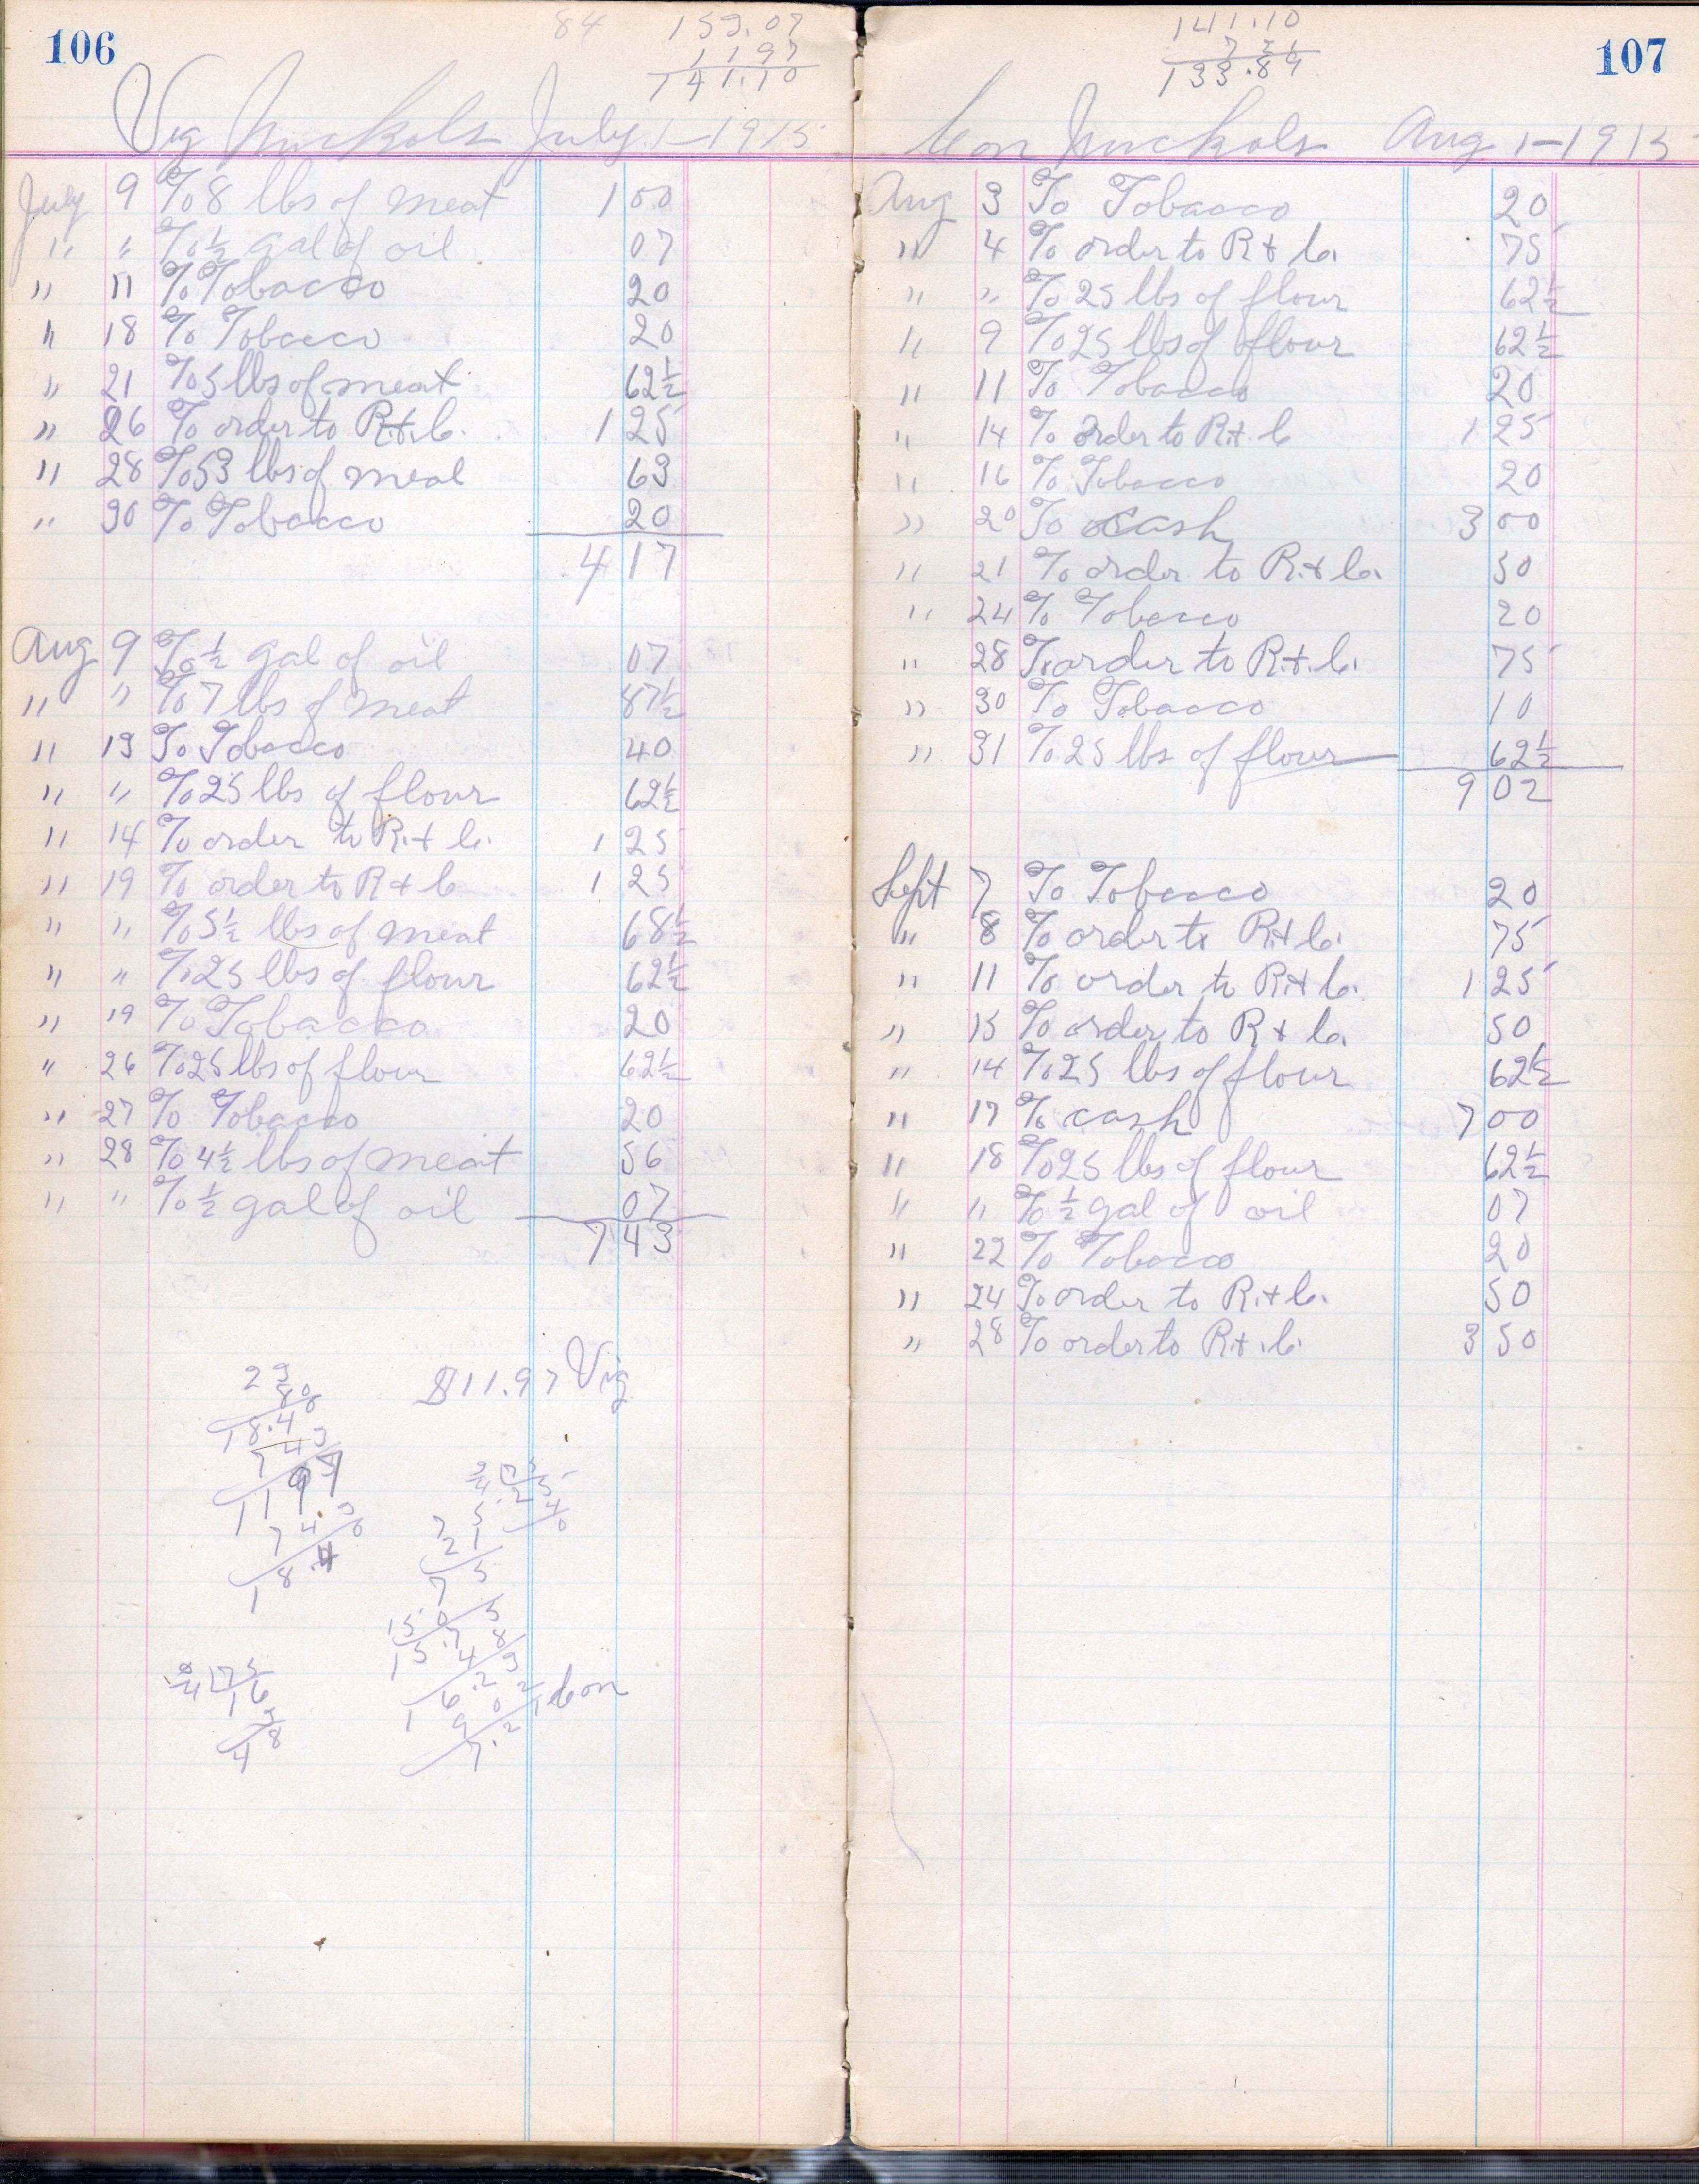 106
84 153.07
11 97
141.10
Vig Nuckols July 1-1915
July 9 To 8 lbs of meat 1 00
" " To ½ gal of oil 07
" 11 To Tobacco 20
" 18 To Tobacco 20
" 21 To 5 lbs of meat 62½
" 26 To order to R.+.C. 1 25
" 28 To 53 lbs of meal 63
" 30 To Tobacco 20
4 17
Aug 9 To ½ gal of oil 07
" " To 7 lbs of meat 87½
" 13 To Tobacco 40
" " To 25 lbs of flour 62½
" 14 To order to R.+ C. 1 25
" 19 To order to R + C 1 25
" " To 5½ lbs of meat 68½
" " To 25 lbs of flour 62½
" 19 To Tobacco 20
" 26 To 25 lbs of flour 62½
" 27 To Tobacco 20
" 28 To 4½ lbs of meat 56
" " To ½ gal of oil 07
7 43
$11.97 Vig
23
80
18.40
7 43
11 97
7 4.3
18.4
75
21
75
15.05
15.78
48
16.23
9 02
7.21 Con
75
16
3
48
107
141.10
7 21
133.89
Con Nuckols Aug 1-1915
Aug 3 To Tobacco 20
" 4 To order to R + C. 75
" " To 25 lbs of flour 62½
" 9 To 25 lbs of flour 62½
" 11 To Tobacco 20
" 14 To order to R.+. C 1 25
" 16 To Tobacco 20
" 20 To cash 3 00
" 21 To order to R.+ C. 50
" 24 To Tobacco 20
" 28 To order to R.+.C. 75
" 30 To Tobacco 10
" 31 To 25 lbs of flour 62½
9 02
Sept 7 To Tobacco 20
" 8 To order to R.+ C. 75
" 11 To order to R.+ C. 1 25
" 15 To order to R + C. 50
" 14 To 25 lbs of flour 62½
" 17 To cash 7 00
" 18 To 25 lbs of flour 62½
" " To ½ gal of oil 07
" 22 To Tobacco 20
" 24 To order to R.+ C. 50
" 28 To order to R.+.C. 3 50